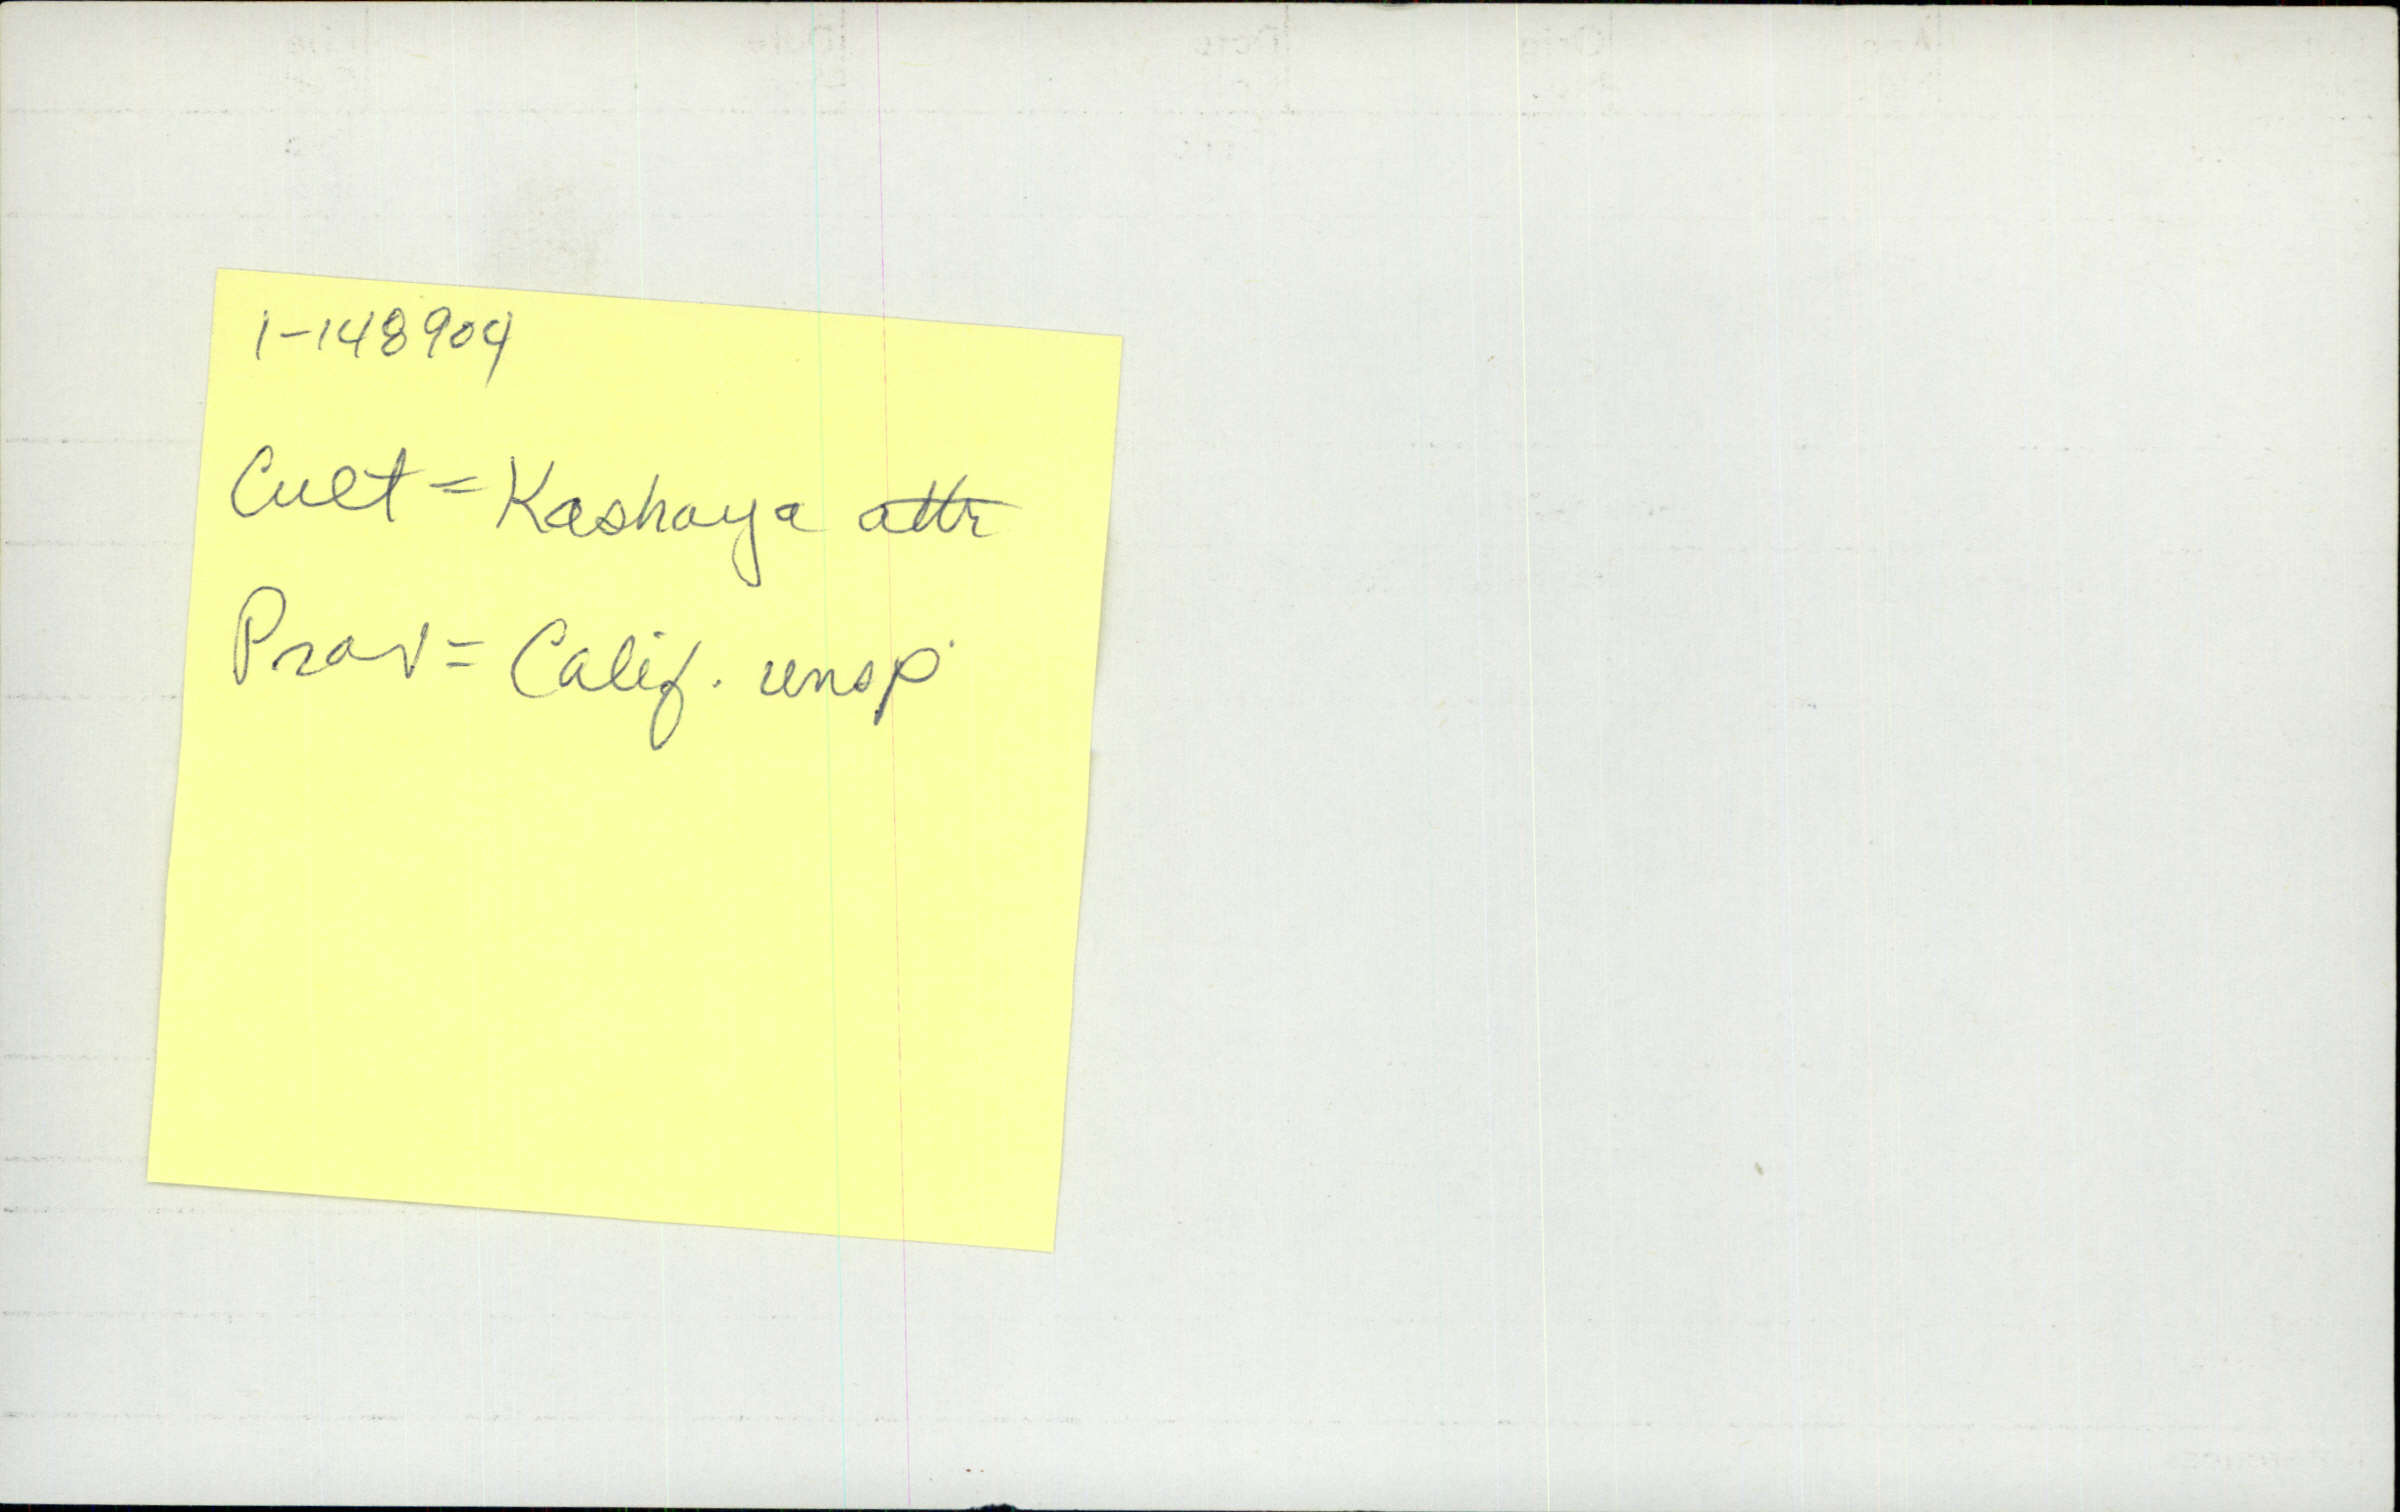 1-148904
Cult = Kashaya attr
Prov = Calif. unsp.